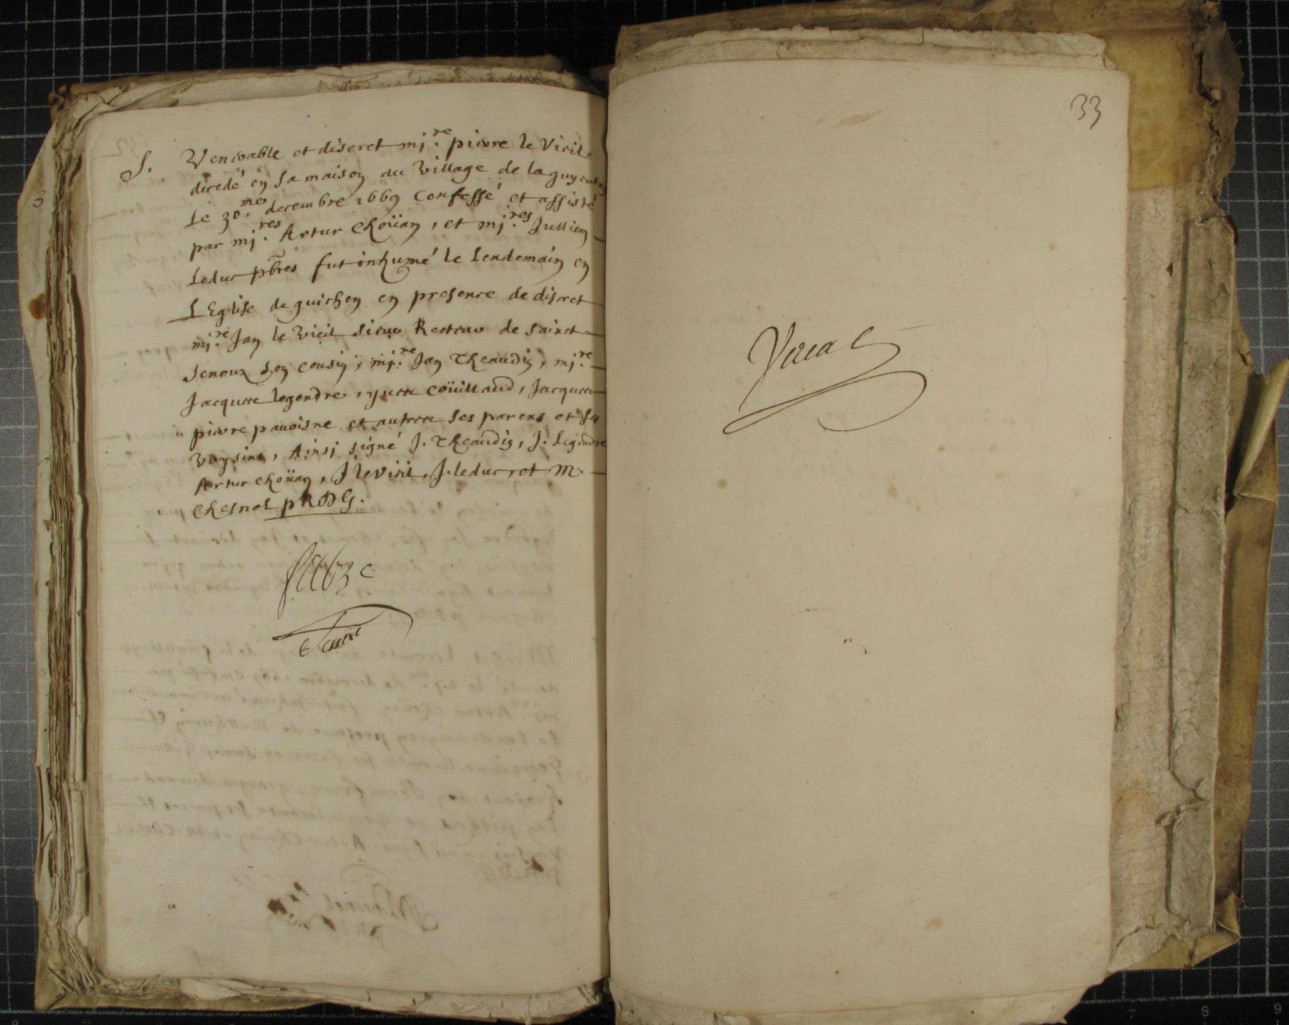 S. Venerable et discret mi.re pierre le Vieil
decedé en sa maison du Village de la
Le 30.mes decembre 1669 Confessé et assisté
par mi.res Artur Choüan, et mi.res Jullien
Leduc pbres fut inhumé le lendemain en
L'Eglise de guichen en presence de discret
mi.re Jan le Vieil sieur Recteur de sainct
Senoux son cousin, mi.re Jan Theaudin, mi.re
Jacques legendre, yvette coüillaud, Jacquette
pierre pavoisne et autres ses parens et
Voysins, Ainsi signé J. Theaudin, J. Legendre
Artur Choüan, J leVieil, J. leduc et M
Chesnel pRBDG.
33